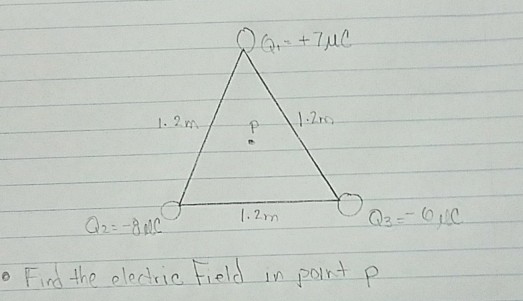 Q1=+7μC
1.2m
1.2m
P
Q2=-8μC
1.2m
Q3=-6μC
• Find the electric field in point p